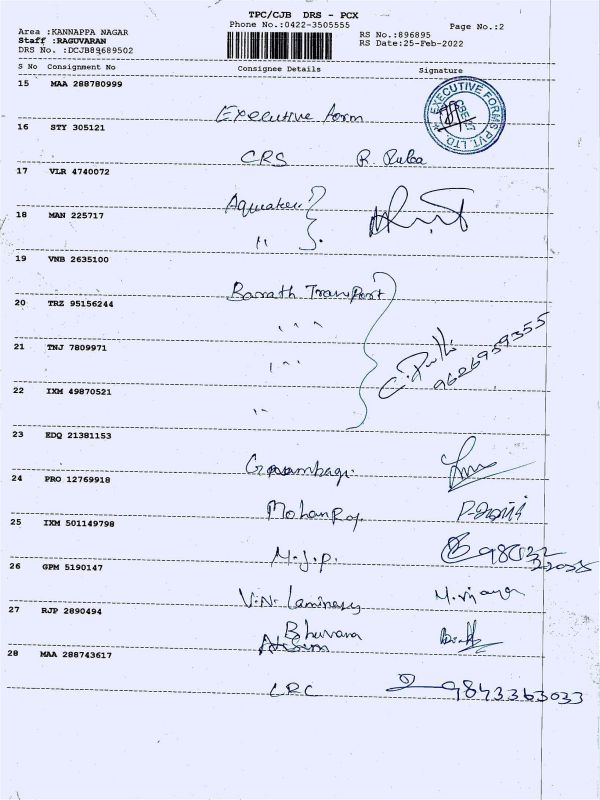 TPC/CJB DRS - PCX
Phone No.:0422-3505555
Page No.:2
Area :KANNAPPA NAGAR
Staff :RAGUVARAN
DRS No. :DCJB89689502
RS No.:896895
RS Date:25-Feb-2022
S No Consignment No Consignee Details Signature
15 MAA 288780999
Executive form
EXECUTIVE FORMS PVT. LTD.
16 STY 305121
CRS R.
17 VLR 4740072
18 MAN 225717
"
19 VNB 2635100
Barath Transport
20 TRZ 95156244
" "
21 TNJ 7809971
" "
C. 9626959355
22 IXM 49870521
"
23 EDQ 21381153
24 PRO 12769918
Mohan Raj.
25 IXM 501149798
M.J.P.
26 GPM 5190147
V.N. M.
27 RJP 2890494
Bhuvana
28 MAA 288743617
CRC 9843363033